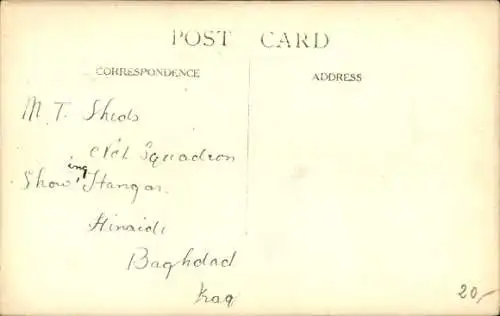 POST CARD
CORRESPONDENCE
ADDRESS
M.T. Sheds
Squadron
Showing Hangar.
Hinaidi
Baghdad
Iraq
20,-